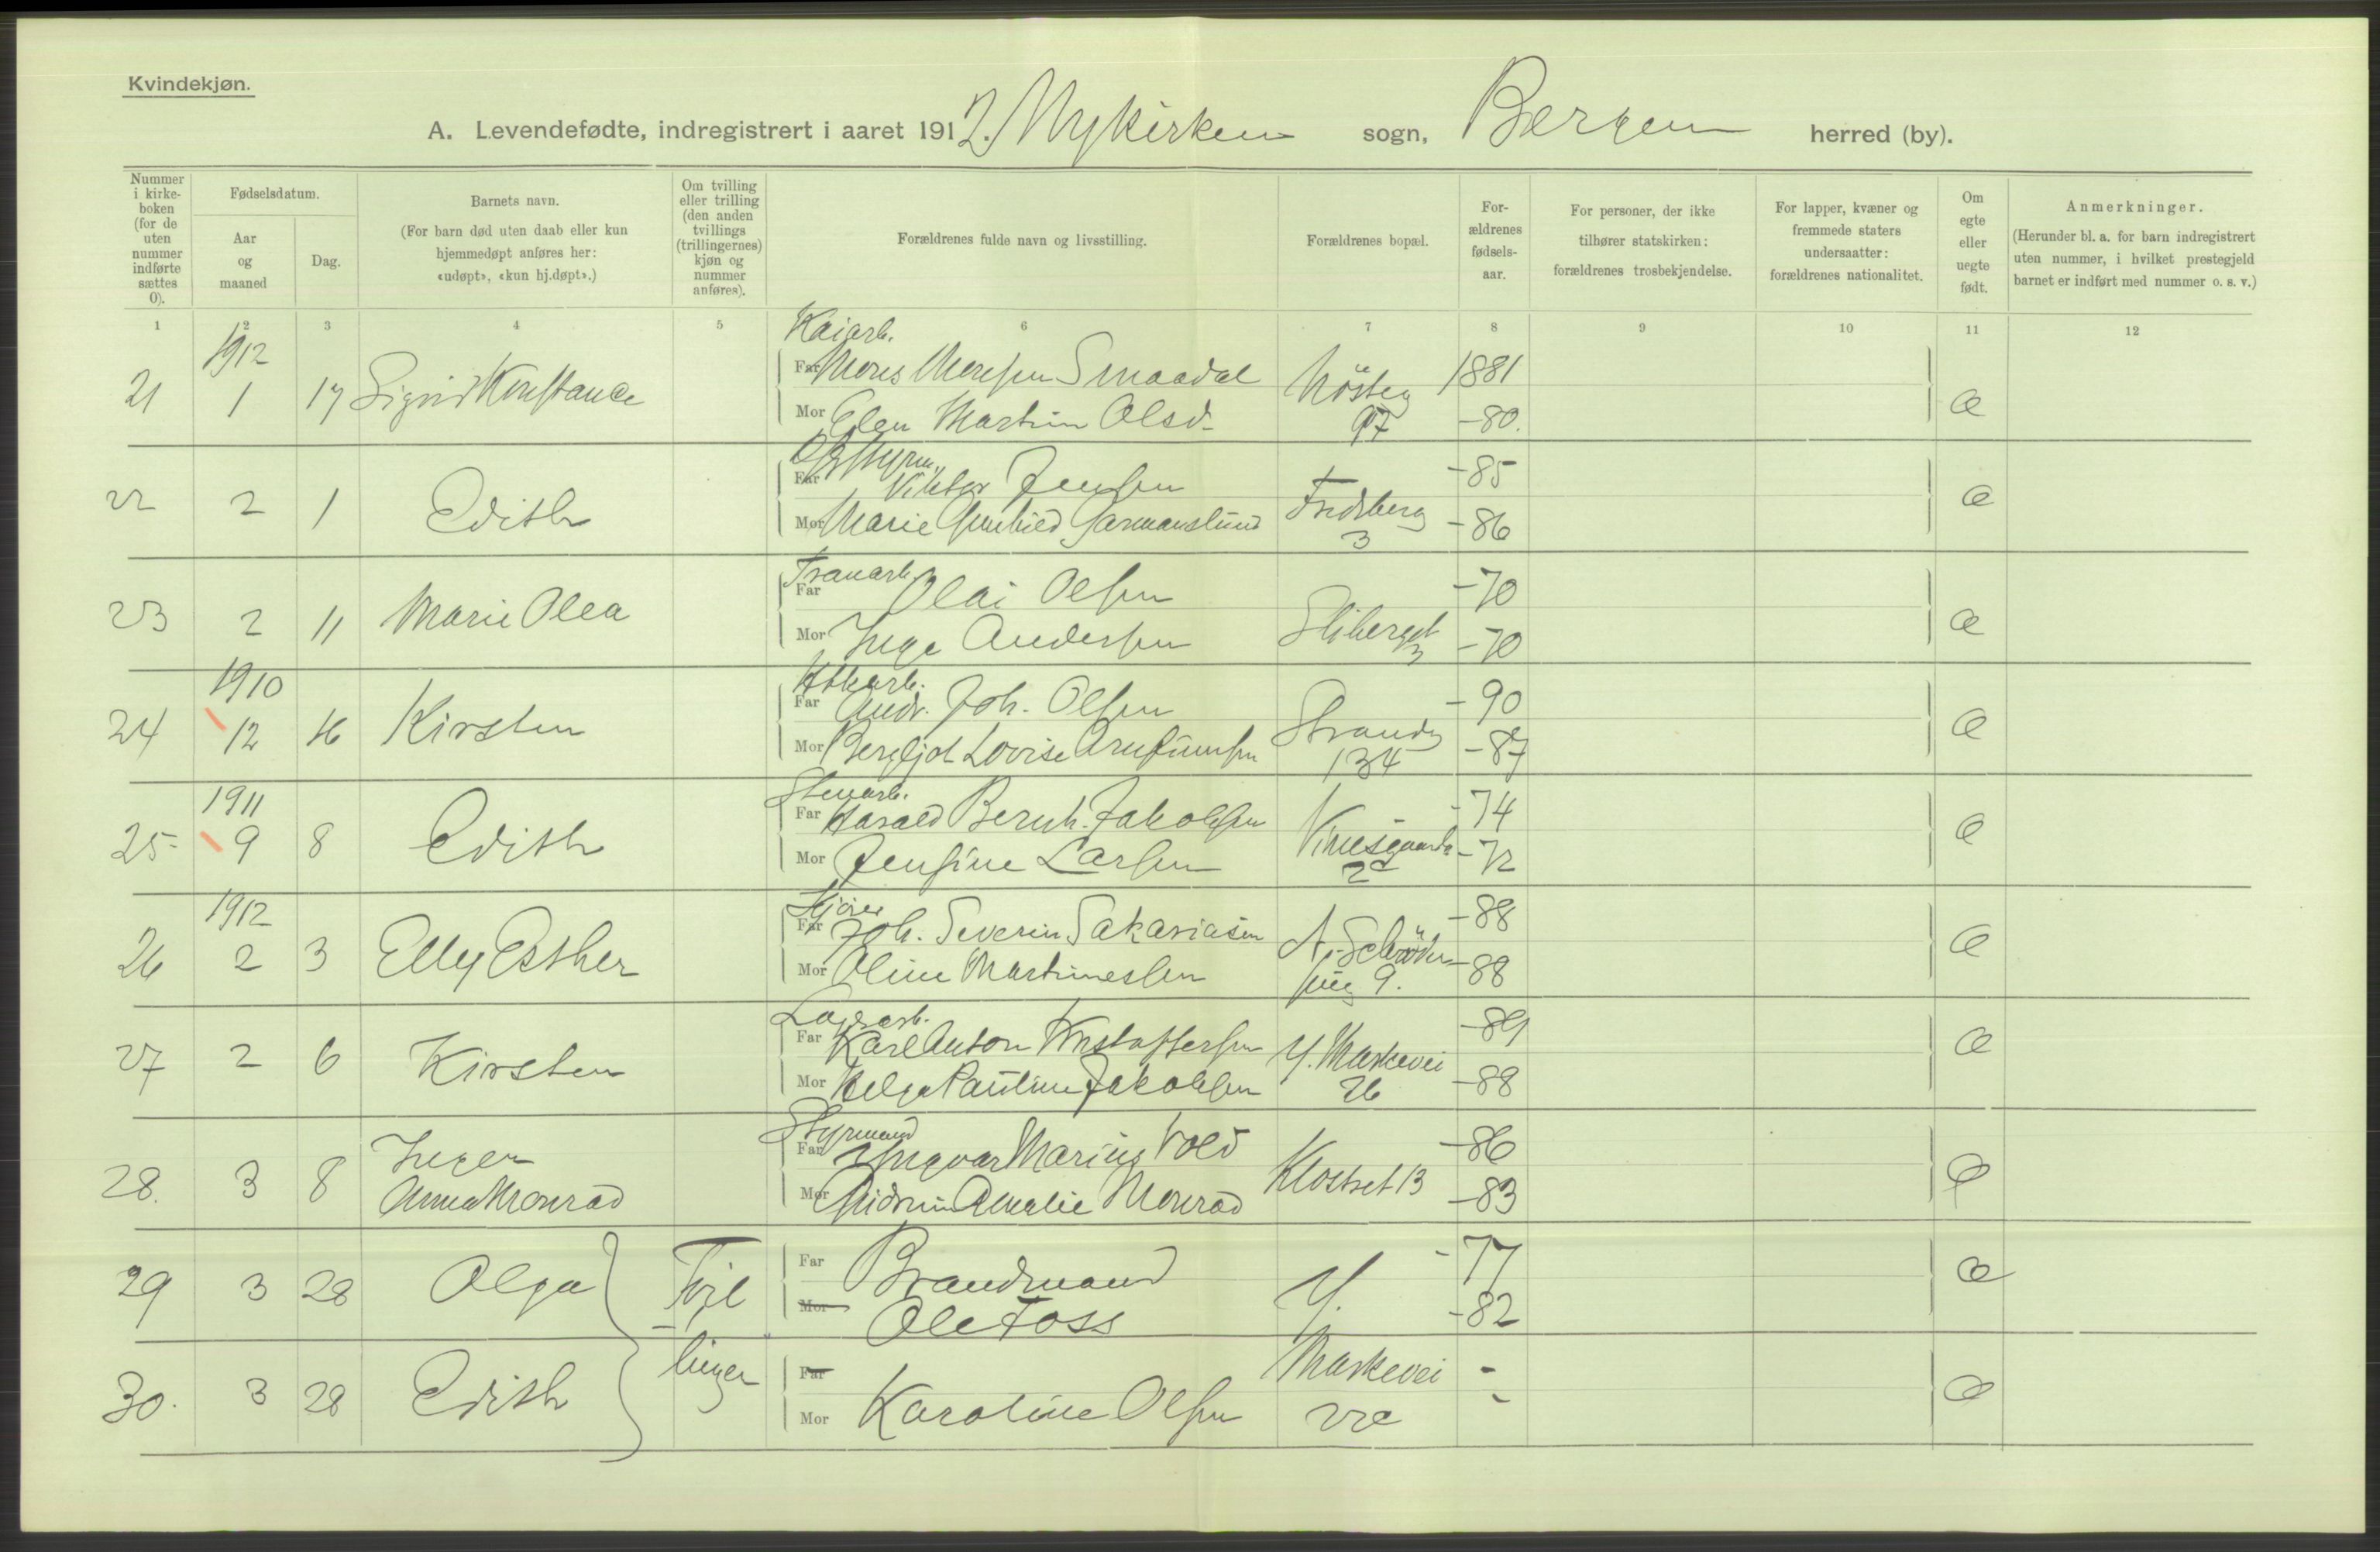 Kvindekjøn.
A. Levendefødte, indregistrert i aaret 1912. Nykirken sogn, Bergen herred (by).
Nummer i kirkeboken (for de uten nummer indførte sættes 0).
Fødselsdatum.
Aar og maaned
Dag.
Barnets navn.
(For barn død uten daab eller kun hjemmedøpt anføres her: «udøpt», «kun hj.døpt».)
Om tvilling eller trilling (den anden tvillings (trillingernes) kjøn og nummer anføres).
Forældrenes fulde navn og livsstilling.
Forældrenes bopæl.
For-ældrenes fødsels-aar.
For personer, der ikke tilhører statskirken: forældrenes trosbekjendelse.
For lapper, kvæner og fremmede staters undersaatter: forældrenes nationalitet.
Om egte eller uegte født.
Anmerkninger.
(Herunder bl. a. for barn indregistrert uten nummer, i hvilket prestegjeld barnet er indført med nummer o. s. v.)
1 2 3 4 5 6 7 8 9 10 11 12
1912
Kaiarb.
21 1 17 Sigrid Konstance
Far Mons Monsen Smaadal 1881
Mor Elen Martin Olsd. Nösteg 97 -80.
22 2 1 Edith
Far Viktor Jensen -85
Mor Marie Gunhild Fredsberg 3 -86
Tranarb.
23 2 11 Marie Olea
Far Olai Olsen -70
Mor Inga Andersen -70
1910
24 12 16 Kirsten
Far Andr. Joh. Olsen -90
Mor Bergljot Lovise Arnfinnsen Strandg 134 -87
1911
Stenarb.
25 9 8 Edith
Far Harald Bernh. Jakobsen -74
Mor Jensine Larsen -72
1912
26 2 3 Elly Esther
Far Joh. Severin Sakariasen -88
Mor Oline Martinessen 9. -88
Lagerarb.
27 2 6 Kirsten
Far Karl Anton Kristoffersen -89
Mor Helga Pauline Jakobsen Y. Markevei 26 -88
Styrmand
28. 3 8 Inger Anna Monrad
Far Ingvar Marius Vold -86
Mor Gudrun Amalie Monrad Klostret 13 -83
29 3 28 Olga Tvil
Far Brandmand -77
Mor Ole Foss Y. -82
30. 3 28 Edith linger
Far Markevei -
Mor Karoline Olsen 22c -